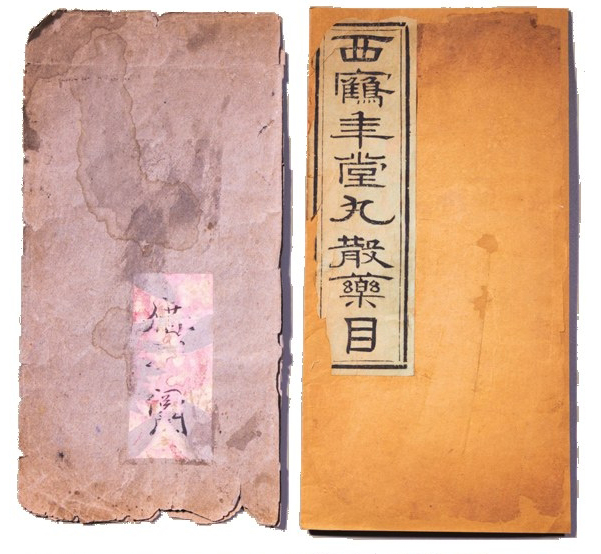 西鶴年堂丸散藥目